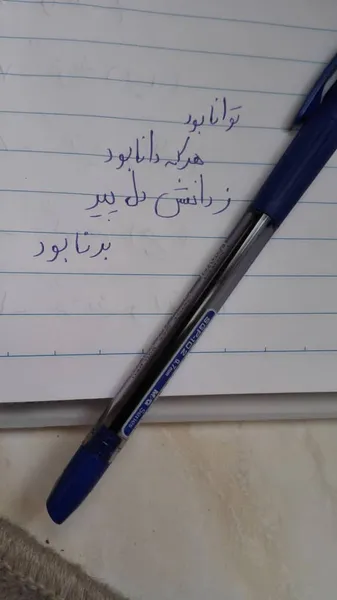 توانا بود
هر که دانا بود
ز دانش دل پیر
برنا بود
0.7mm